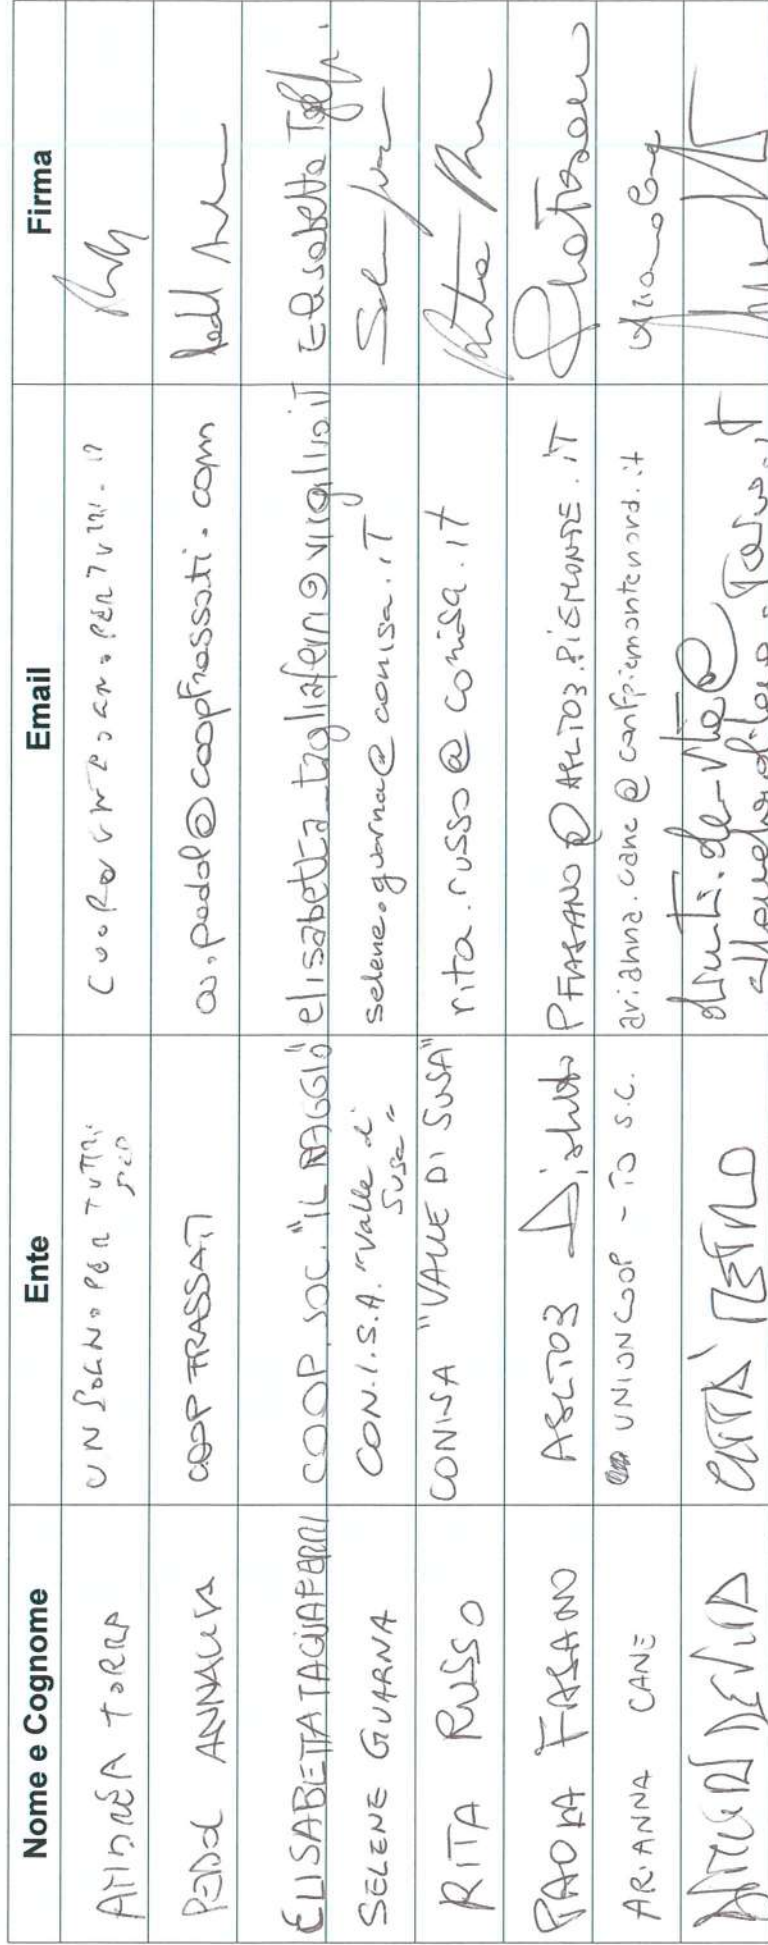 Nome e Cognome Ente Email Firma
ANDREA TORRA UN SOGNO PER TUTTI
PEDOL ANNALISA COOP FRASSATI a.pedol@coopfrassati.com
ELISABETTA TAGLIAFERRI COOP. SOC. "IL RAGGIO" elisabetta_tagliaferri@virgilio.it Elisabetta
SELENE GUARNA CON.I.S.A. "Valle di Susa" selene.guarna@conisa.iT
RITA RUSSO CONISA "VALLE DI SUSA" rita.russo@conisa.it Rita
PAOLA FASANO ASLTO3 PFASANO@ASLTO3.PIEMONTE.IT
ARIANNA CANE UNIONCOOP - TO S.C. arianna.cane@confpiemontenord.it
CITTÀ METRO